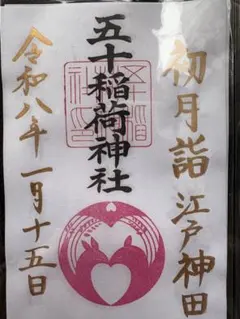 初月詣 江戸神田
五十稲荷神社
令和八年一月十五日